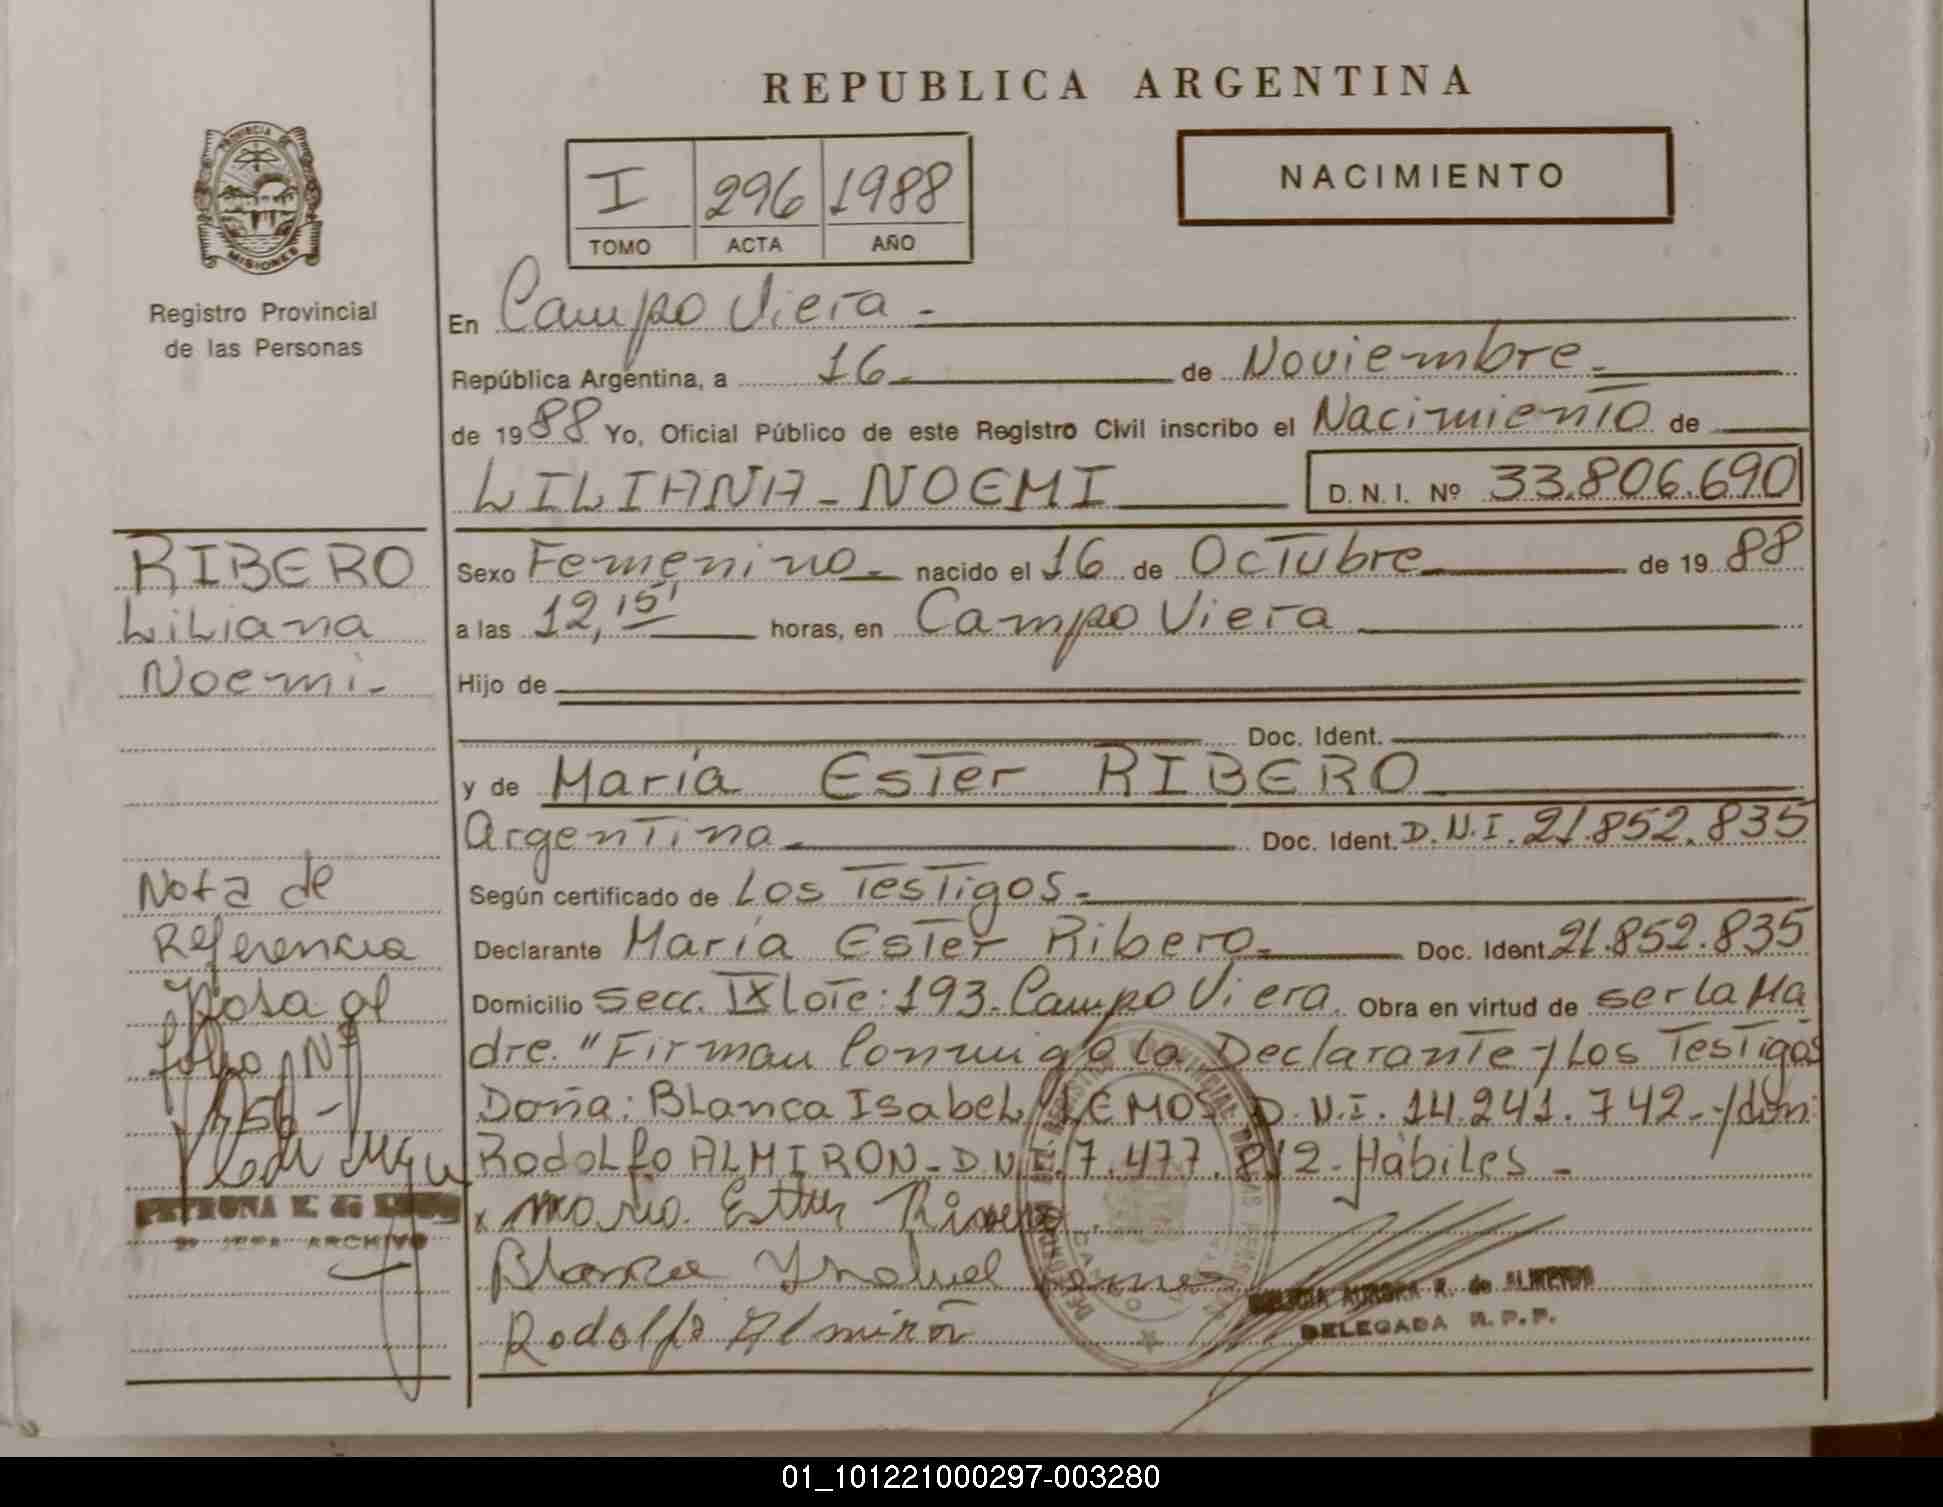 REPUBLICA ARGENTINA
PROVINCIA DE
MISIONES
Registro Provincial
de las Personas
I 296 1988
TOMO ACTA AÑO
NACIMIENTO
En Campo Viera -
República Argentina, a 16 - de Noviembre -
de 1988 Yo, Oficial Público de este Registro Civil inscribo el Nacimiento de
LILIANA - NOEMI D. N. I. Nº 33.806.690
Sexo Femenino - nacido el 16 de Octubre de 1988
a las 12,15' horas, en Campo Viera
Hijo de
Doc. Ident.
y de María Ester RIBERO
Argentina - Doc. Ident. D.N.I. 21.852.835
Según certificado de Los Testigos -
Declarante María Ester Ribero - Doc. Ident. 21.852.835
Domicilio secc. IX Lote: 193. Campo Viera. Obra en virtud de ser la Ma
dre. "Firman Conmigo la Declarante y Los Testigos
Doña: Blanca Isabel LEMOS D.N.I. 14.241.742 - y don:
Rodolfo ALMIRON - D.N.I. 7.477.812 - Hábiles -
x Maria Ester
Blanca Ysabel Lemes
Rodolfo Almirón
AURORA R. de ALMEYDA
DELEGADA R.P.P.
RIBERO
Liliana
Noemi -
Nota de
Referencia
Pasa al
folio Nº
PETRONA E. de
2º JEFA ARCHIVO
01_101221000297-003280